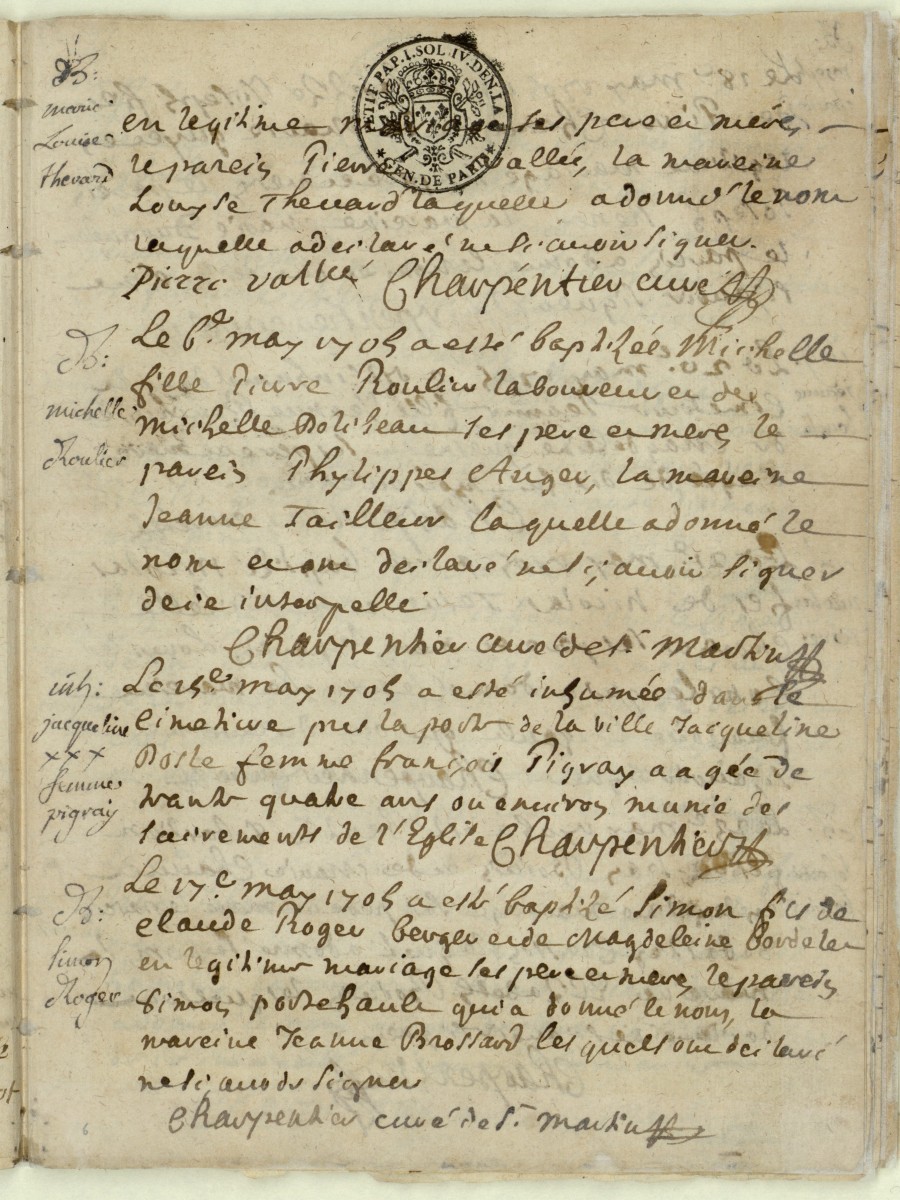 PETIT PAP. I. SOL. IV. DEN. LA
GEN. DE PARIS
B:
marie
Louise
thevard
en legitime ses pere et mere,
le parein Pierre vallée, la mareine
Louyse Thevard laquelle a donné le nom
laquelle a declaré ne scavoir signer.
Pierre vallée Charpentier curé
B:
michelle
Roulier
Le 6e. may 1705 a esté baptizée Michelle
fille Pierre Roulier laboureur et de
michelle ses pere et mere, le
parein Phylippes Auger, la mareine
Jeanne Tailleur laquelle a donné le
nom et ont declaré ne scavoir signer
de ce interpellé
Charpentier curé de St. Martin
inh:
jacqueline
xxx
femme
pigray
Le 15e may 1705 a esté inhumée dans le
cimetiere pres la porte de la ville Jacqueline
femme françois Pigray aagée de
trante quatre ans ou environ munie des
sacrements de l'Eglise Charpentier
B:
simon
Roger
Le 17e may 1705 a esté baptizé Simon fils de
claude Roger berger et de Magdeleine
en legitime mariage ses pere et mere, le parein
Simon qui a donné le nom, la
mareine Jeanne Brossard lesquels ont declaré
ne scavoir signer
Charpentier curé de St. Martin